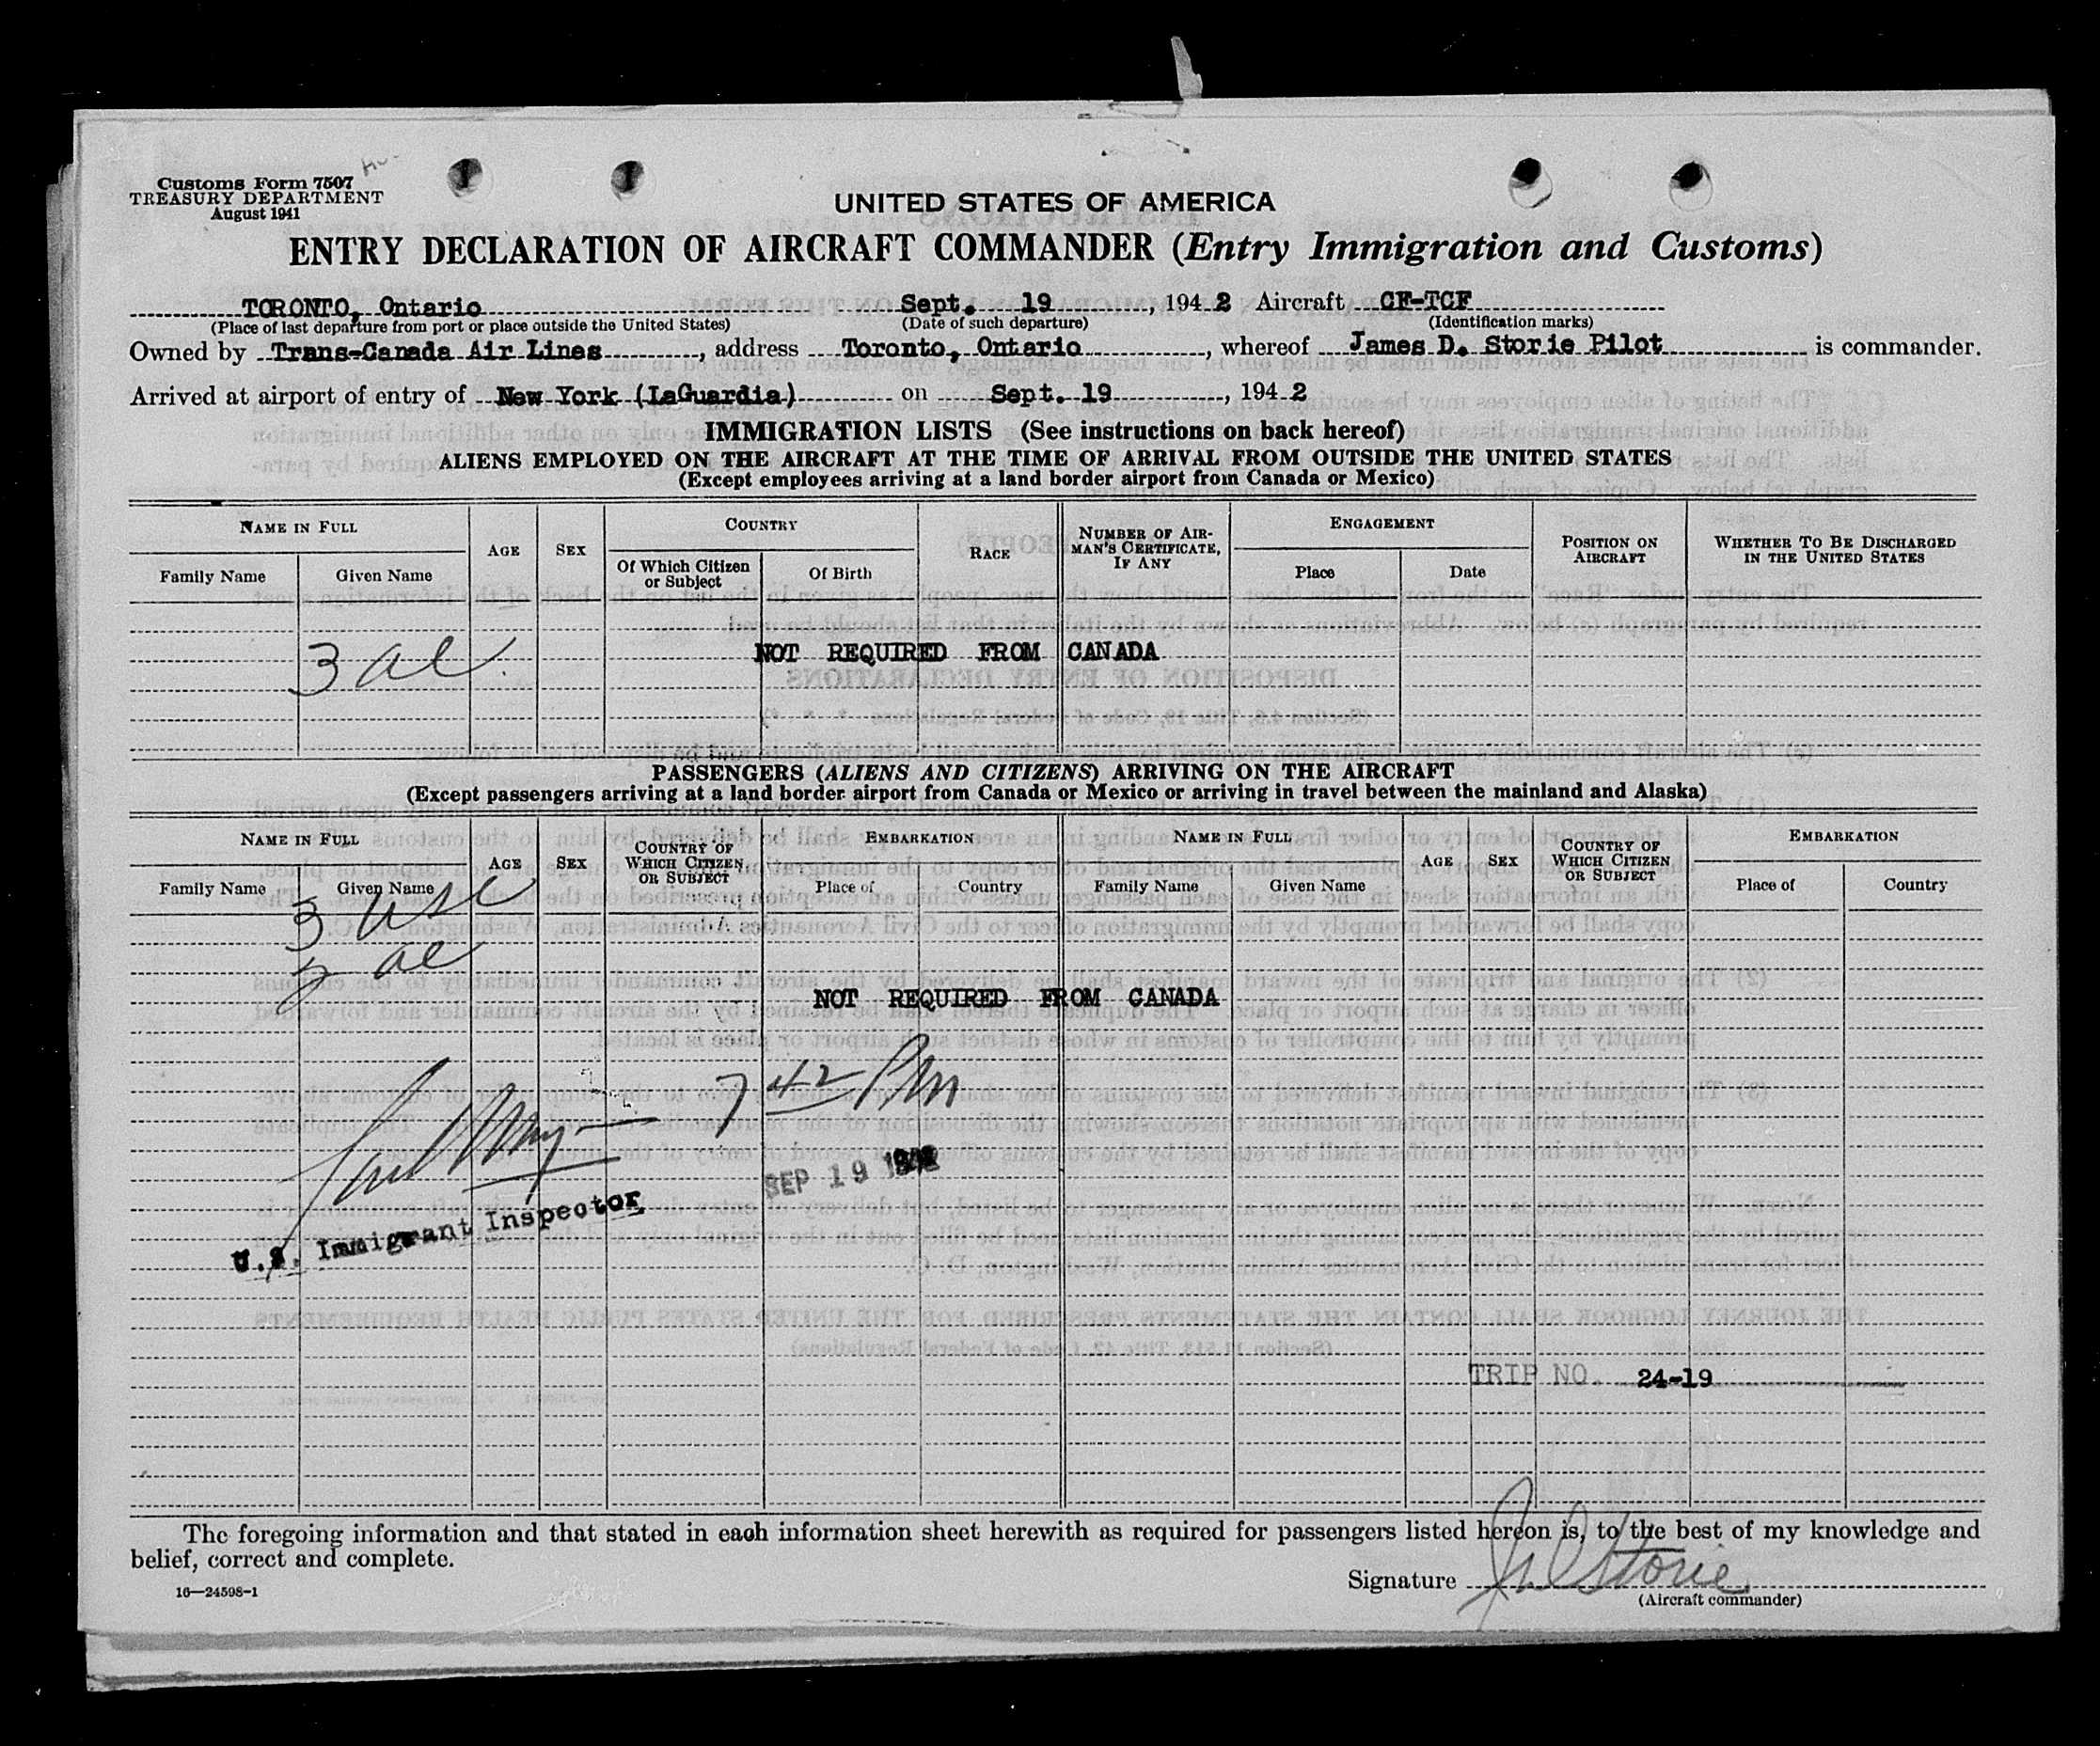 Customs Form 7507
TREASURY DEPARTMENT
August 1941
UNITED STATES OF AMERICA
ENTRY DECLARATION OF AIRCRAFT COMMANDER (Entry Immigration and Customs)
TORONTO, Ontario Sept. 19, 1942 Aircraft CF-TCF
(Place of last departure from port or place outside the United States) (Date of such departure) (Identification marks)
Owned by Trans-Canada Air Lines, address Toronto, Ontario, whereof James D. Storie Pilot is commander.
Arrived at airport of entry of New York (LaGuardia) on Sept. 19, 1942
IMMIGRATION LISTS (See instructions on back hereof)
ALIENS EMPLOYED ON THE AIRCRAFT AT THE TIME OF ARRIVAL FROM OUTSIDE THE UNITED STATES
(Except employees arriving at a land border airport from Canada or Mexico)
NAME IN FULL AGE SEX COUNTRY RACE NUMBER OF AIRMAN'S CERTIFICATE, IF ANY ENGAGEMENT POSITION ON AIRCRAFT WHETHER TO BE DISCHARGED IN THE UNITED STATES
Family Name Given Name Of Which Citizen or Subject Of Birth Place Date
3 ae
NOT REQUIRED FROM CANADA
PASSENGERS (ALIENS AND CITIZENS) ARRIVING ON THE AIRCRAFT
(Except passengers arriving at a land border airport from Canada or Mexico or arriving in travel between the mainland and Alaska)
NAME IN FULL AGE SEX COUNTRY OF WHICH CITIZEN OR SUBJECT EMBARKATION NAME IN FULL AGE SEX COUNTRY OF WHICH CITIZEN OR SUBJECT EMBARKATION
Family Name Given Name Place of Country Family Name Given Name Place of Country
3 usc
ae
NOT REQUIRED FROM CANADA
7 42 PM
SEP 19 1942
U.S. Immigrant Inspector
TRIP NO. 24-19
The foregoing information and that stated in each information sheet herewith as required for passengers listed hereon is, to the best of my knowledge and
belief, correct and complete.
16—24598-1
Signature J D Storie
(Aircraft commander)